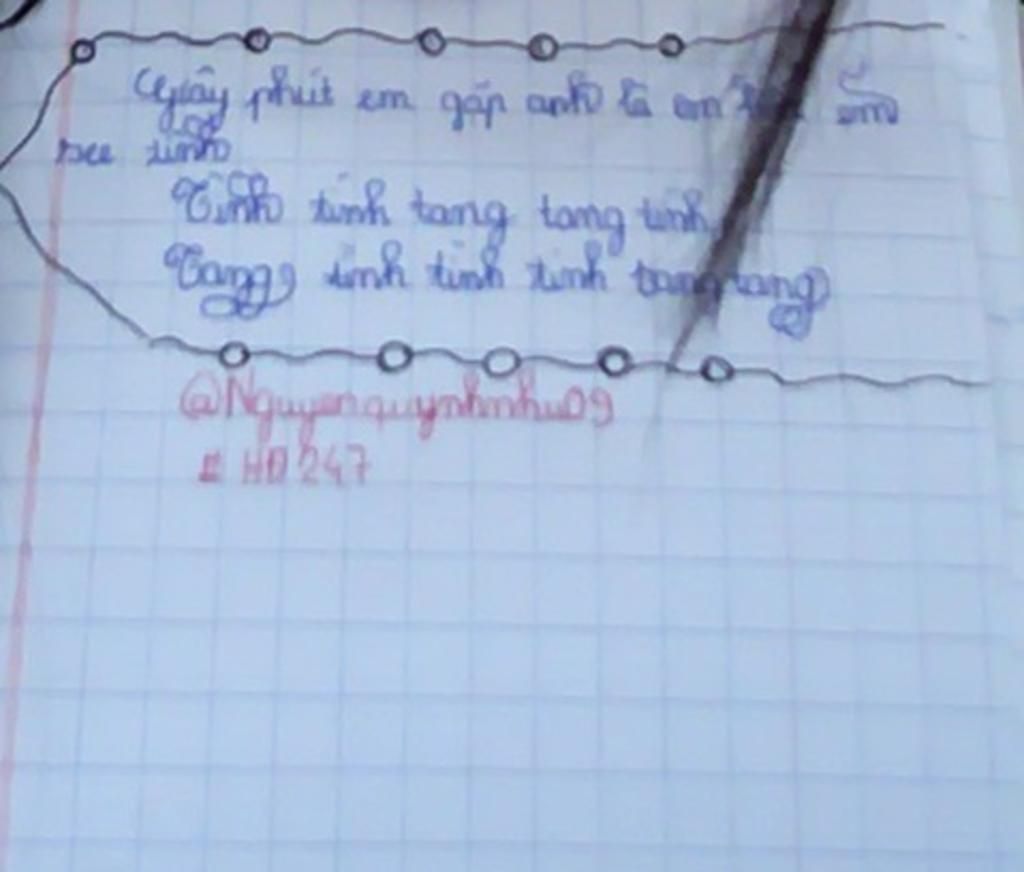 Giây phút em gặp anh là em em
see tình
Tình tình tang tang tính
Tang tính tình tình tang tang
@Nguyenquynhnhu09
# HD247